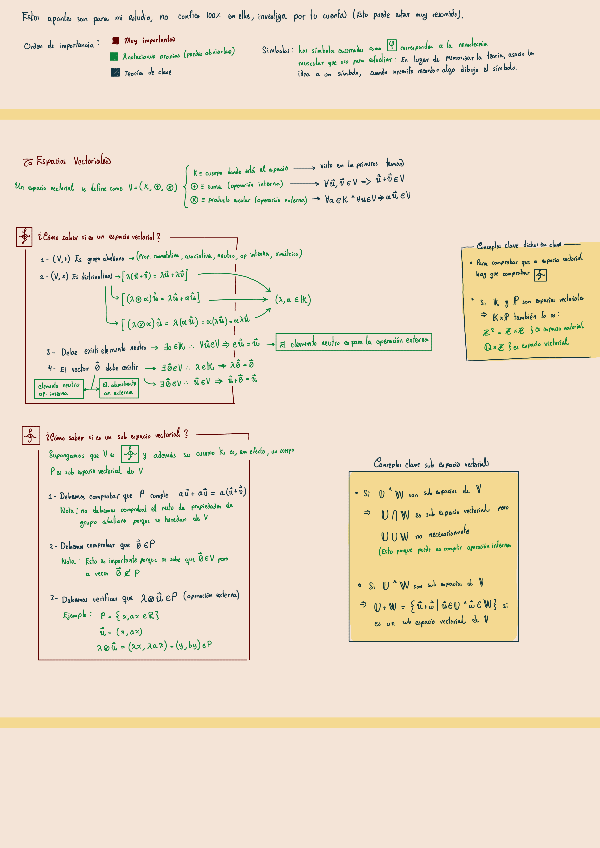 Estos apuntes son para mi estudio, no confíes 100% en ellos, investiga por tu cuenta (Esto puede estar muy resumido).
Orden de importancia:
Muy importantes
Anotaciones propias (puedes obviarlas)
Teorías de clase
Símbolos: Los símbolos encerrados como corresponden a la nemotecnia
muscular que uso para estudiar. En lugar de memorizar la teoría, asocio la
idea a un símbolo, cuando necesito recordar algo dibujo el símbolo.
Espacios Vectoriales
Un espacio vectorial se define como V=(K, ⊕, ⊗)
K = cuerpo donde está el espacio → visto en los primeros temas
⊕ = suma (operación interna) → ∀ū, v̄ ∈ V → ū+v̄ ∈ V
⊗ = producto escalar (operación externa) → ∀α∈K ^ ∀ū∈V ⇒ αū∈V
¿Cómo saber si es un espacio vectorial?
1- (V,+) Es grupo abeliano → (Prop. conmutativa, asociativa, neutro, op interna, simétrico)
2- (V,·) Es distributivo → [λ(ū+v̄) = λū+λv̄]
[(λ⊕α)ū = λū+αū]
(λ,α∈K)
[(λ⊗α)ū = λ(αū) = α(λū) = αλū]
3- Debe existir elemento neutro → ∃e∈K ∴ ∀ū∈V ⇒ eū = ū → El elemento neutro es para la operación externa
4- El vector 0̄ debe existir → ∃0̄∈V ∴ λ∈K ⇒ λ0̄ = 0̄
elemento neutro
op. interna
El absorbente
op. externa
→ ∃0̄∈V ∴ ū∈V ⇒ ū+0̄ = ū
Conceptos clave dichos en clase
• Para comprobar que es espacio vectorial
hay que comprobar
• Si K y P son espacios vectoriales
⇒ K×P también lo es:
Z² = Z×Z } Es espacio vectorial
Q×Z } es espacio vectorial
¿Cómo saber si es un sub espacio vectorial?
Supongamos que V es y además su cuerpo K es, en efecto, un cuerpo
P es sub espacio vectorial de V
1- Debemos comprobar que P cumple αū+αv̄ = α(ū+v̄)
Nota: no debemos comprobar el resto de propiedades de
grupo abeliano porque se heredan de V
2- Debemos comprobar que 0̄∈P
Nota: Esto es importante porque se sabe que 0̄∈V pero
a veces 0̄∉P
3- Debemos verificar que λ⊗ū∈P (operación externa)
Ejemplo: P = {x,ax∈R}
ū = (x,ax)
λ⊗ū = (λx, λax) = (y, by)∈P
Conceptos clave sub espacio vectorial
• Si U ^ W son sub espacios de V
⇒ U∩W es sub espacio vectorial pero
U∪W no necesariamente
(Esto porque puede no cumplir operación interna
• Si U ^ W son sub espacios de V
⇒ U+W = {ū+w̄ | ū∈U ^ w̄∈W} sí
es un sub espacio vectorial de V